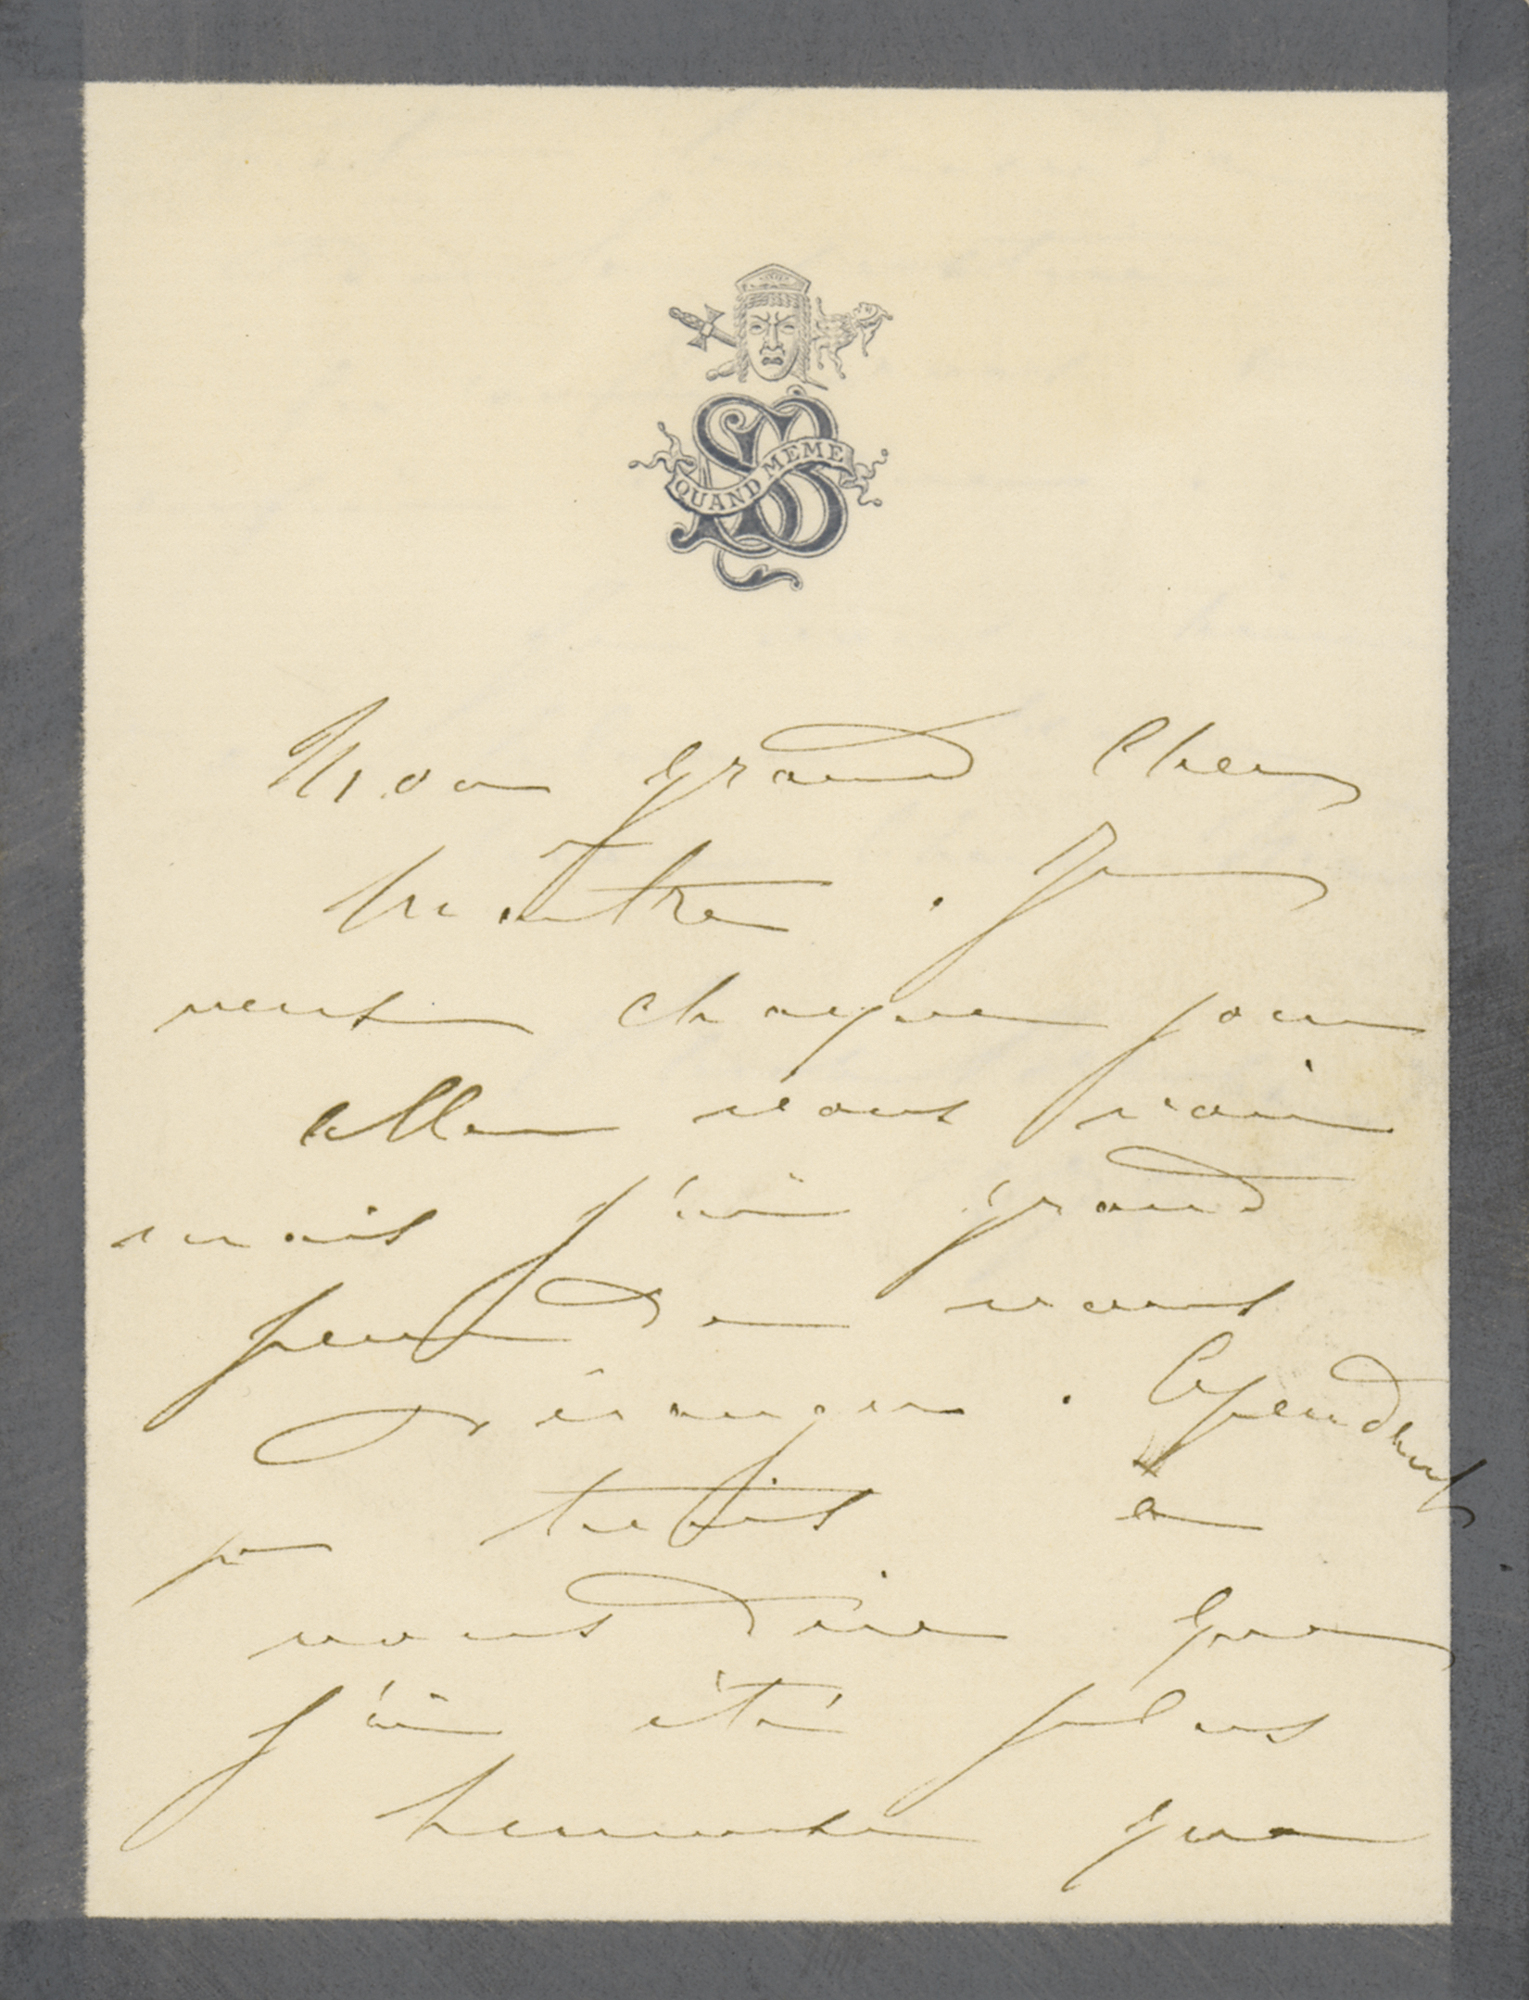 QUAND MEME
Mon grand Cher
Maître. Je
veux chaque jour
aller vous voir
mais j'ai grand
peur de vous
déranger. Cependant
je tiens à
vous dire que
j'ai été plus
heureuse que